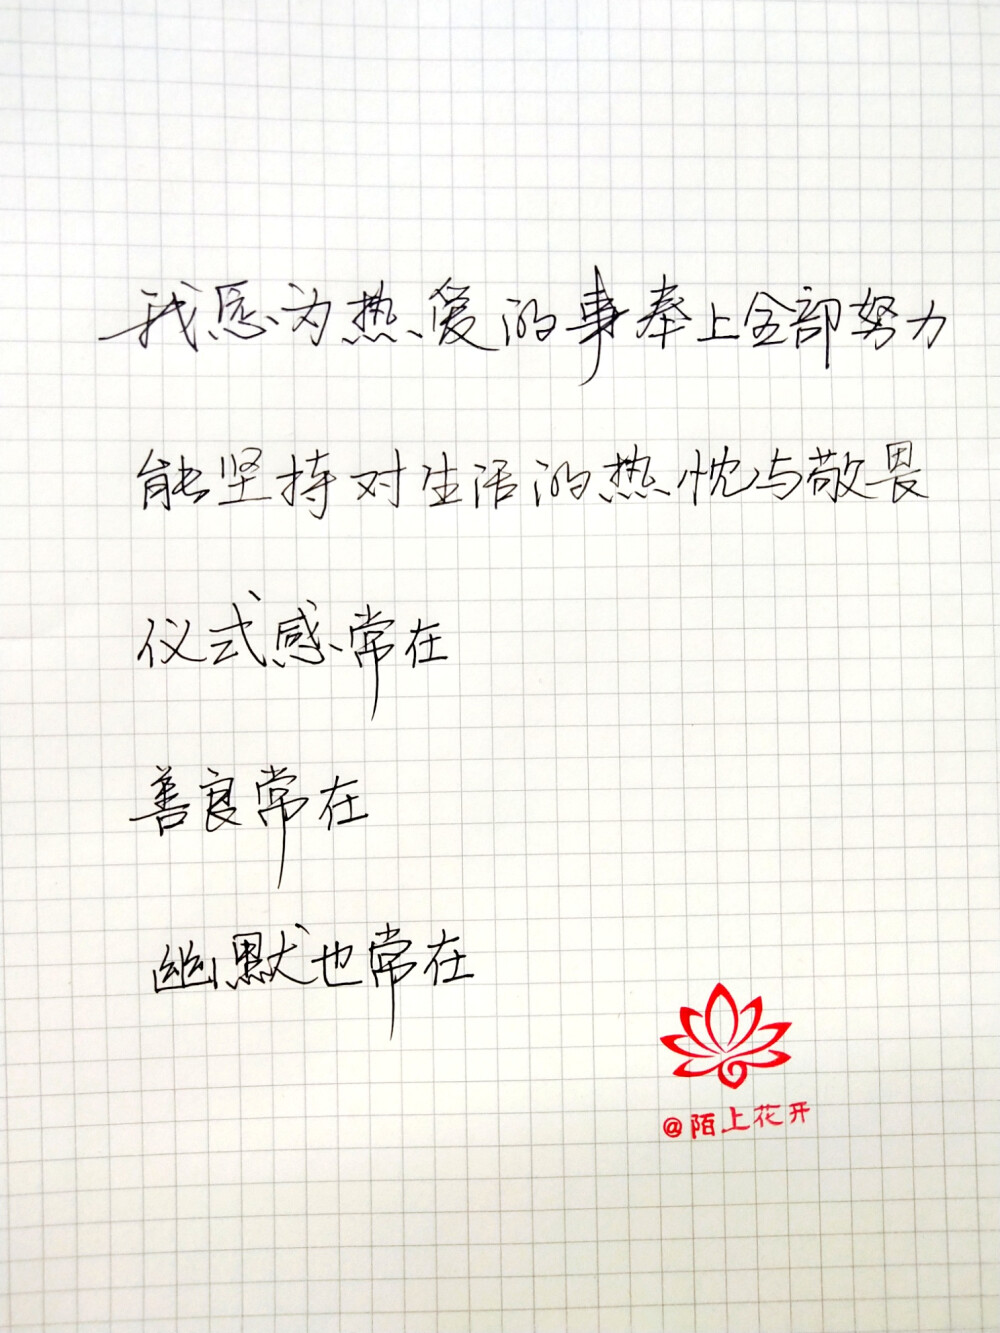 我愿为热爱的事奉上全部努力
能坚持对生活的热忱与敬畏
仪式感常在
善良常在
幽默也常在
@陌上花开